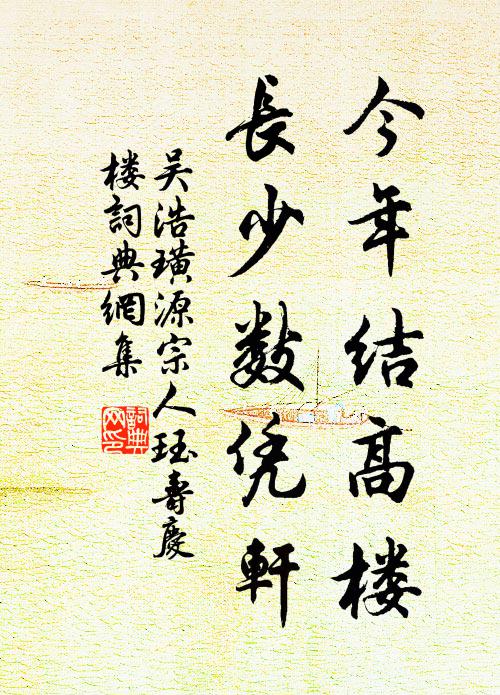 今年结高楼
長少数凭軒
吴浩璜源宗人珏壽慶
楼詞典網集
詞典网印